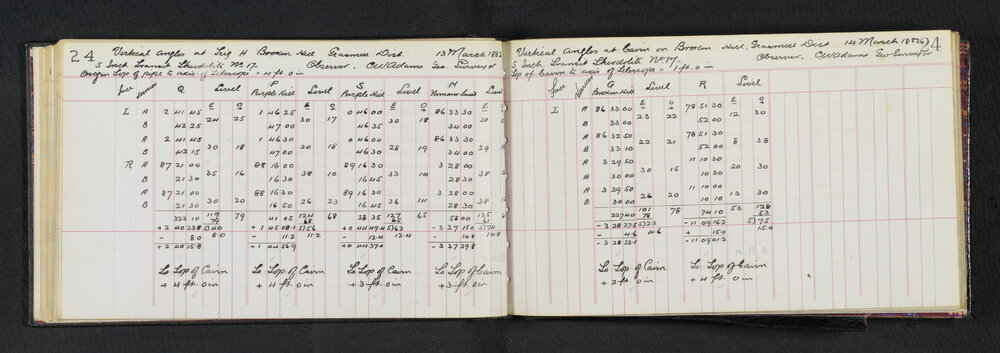 24
Vertical Angles at Trig H Brooken Hill Grasmere Dist 13th March 1882
5 Inch Transit Theodolite No 17. Observer, CWAdams Geo Surveyor
Origin Top of pipe to axis of Telescope = 4 ft. 0 in
Face Q Level P Level S Level N Level
Purple Hill Purple Hill
E O E O E O E
I A 2 41 45 1 46 25 0 46 00 86 33 30
24 25 30 17 30 18 30
B 42 25 47 00 46 35 34 00
A 2 41 45 1 46 30 0 46 00 86 33 30
30 18 30 18 28 19 29
B 42 15 47 00 46 30 34 00
R A 87 21 00 88 16 00 89 16 30 3 28 00
35 16 38 10 33 14 38
B 21 30 16 30 16 45 28 30
A 87 21 00 88 16 30 89 16 30 3 28 00
30 20 26 23 36 14 38
B 21 30 16 50 16 45 28 30
323 10 119 79 41 05 124 68 38 35 127 65 58 00 135
+ 2 40 23.8 5)40 + 1 45 08.1 5)56 + 0 44 49.4 5)62 - 3 27 15.0 5)74
- 8.0 8.0 - 11.2 11.2 - 12.4 12.4 - 14.8 14.8
+ 2 40 15.8 + 1 44 56.9 + 0 44 37.0 - 3 27 29.8
To Top of Cairn To Top of Cairn To Top of Cairn To Top of Cairn
+ 4 ft. 0 in + 4 ft. 0 in + 3 ft. 0 in + 3 ft. 0 in
24
Vertical Angles at Cairn on Brooken Hill, Grasmere Dist 14 March 1882
5 Inch Transit Theodolite No 17. Observer, CWAdams Geo Surveyor
Top of Cairn to axis of Telescope = 1 ft. 0 in
Face G Level R Level
Brooken Hill
E O E O
I A 86 33 00 78 51 30
23 22 12 30
B 33 00 52 25
A 86 32 50 78 51 30
22 21 8 38
B 33 10 52 00
A 3 29 50 11 10 30
15 30 20 30
B 30 00 10 30
A 3 29 50 11 10 00
26 20 13 30
B 30 00 10 10
227 40 101 78 74 10 53 128
- 3 28 27.5 5)23 - 11 09 16.2 5)75
- 4.6 4.6 + 15.0 15.0
- 3 28 32.1 - 11 09 01.2
To Top of Cairn To Top of Cairn
+ 2 ft. 0 in + 4 ft. 0 in